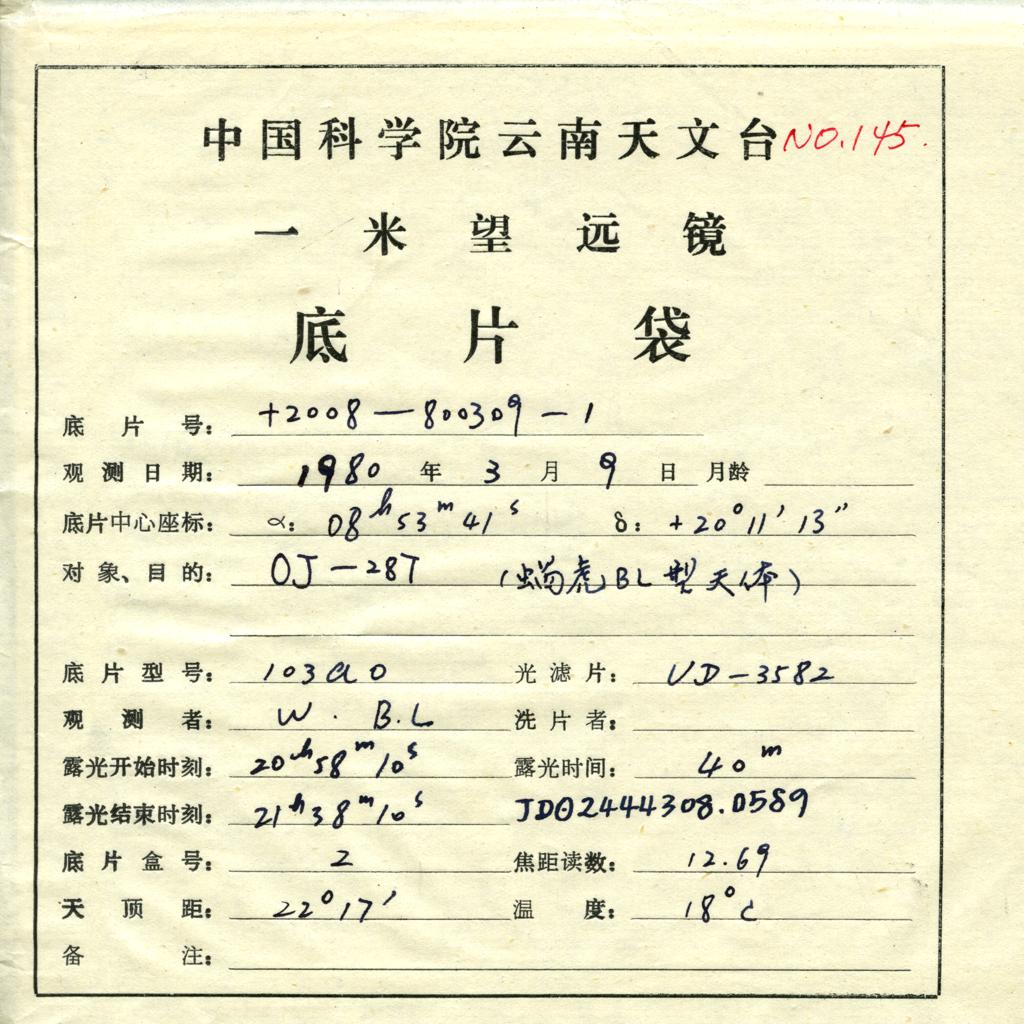 中国科学院云南天文台 NO.145.
一米望远镜
底片袋
底片号: +2008-800309-1
观测日期: 1980 年 3 月 9 日 月龄
底片中心座标: α: 08h 53m 41s δ: +20°11′13″
对象、目的: OJ-287 (蝎虎BL型天体)
底片型号: 103aO 光滤片:
观测者: W. B.L 洗片者:
露光开始时刻: 20h 58m 10s 露光时间: 40m
露光结束时刻: 21h 38m 10s JD⊙2444308.0589
底片盒号: 2 焦距读数: 12.69
天顶距: 22°17′ 温度: 18°C
备注: